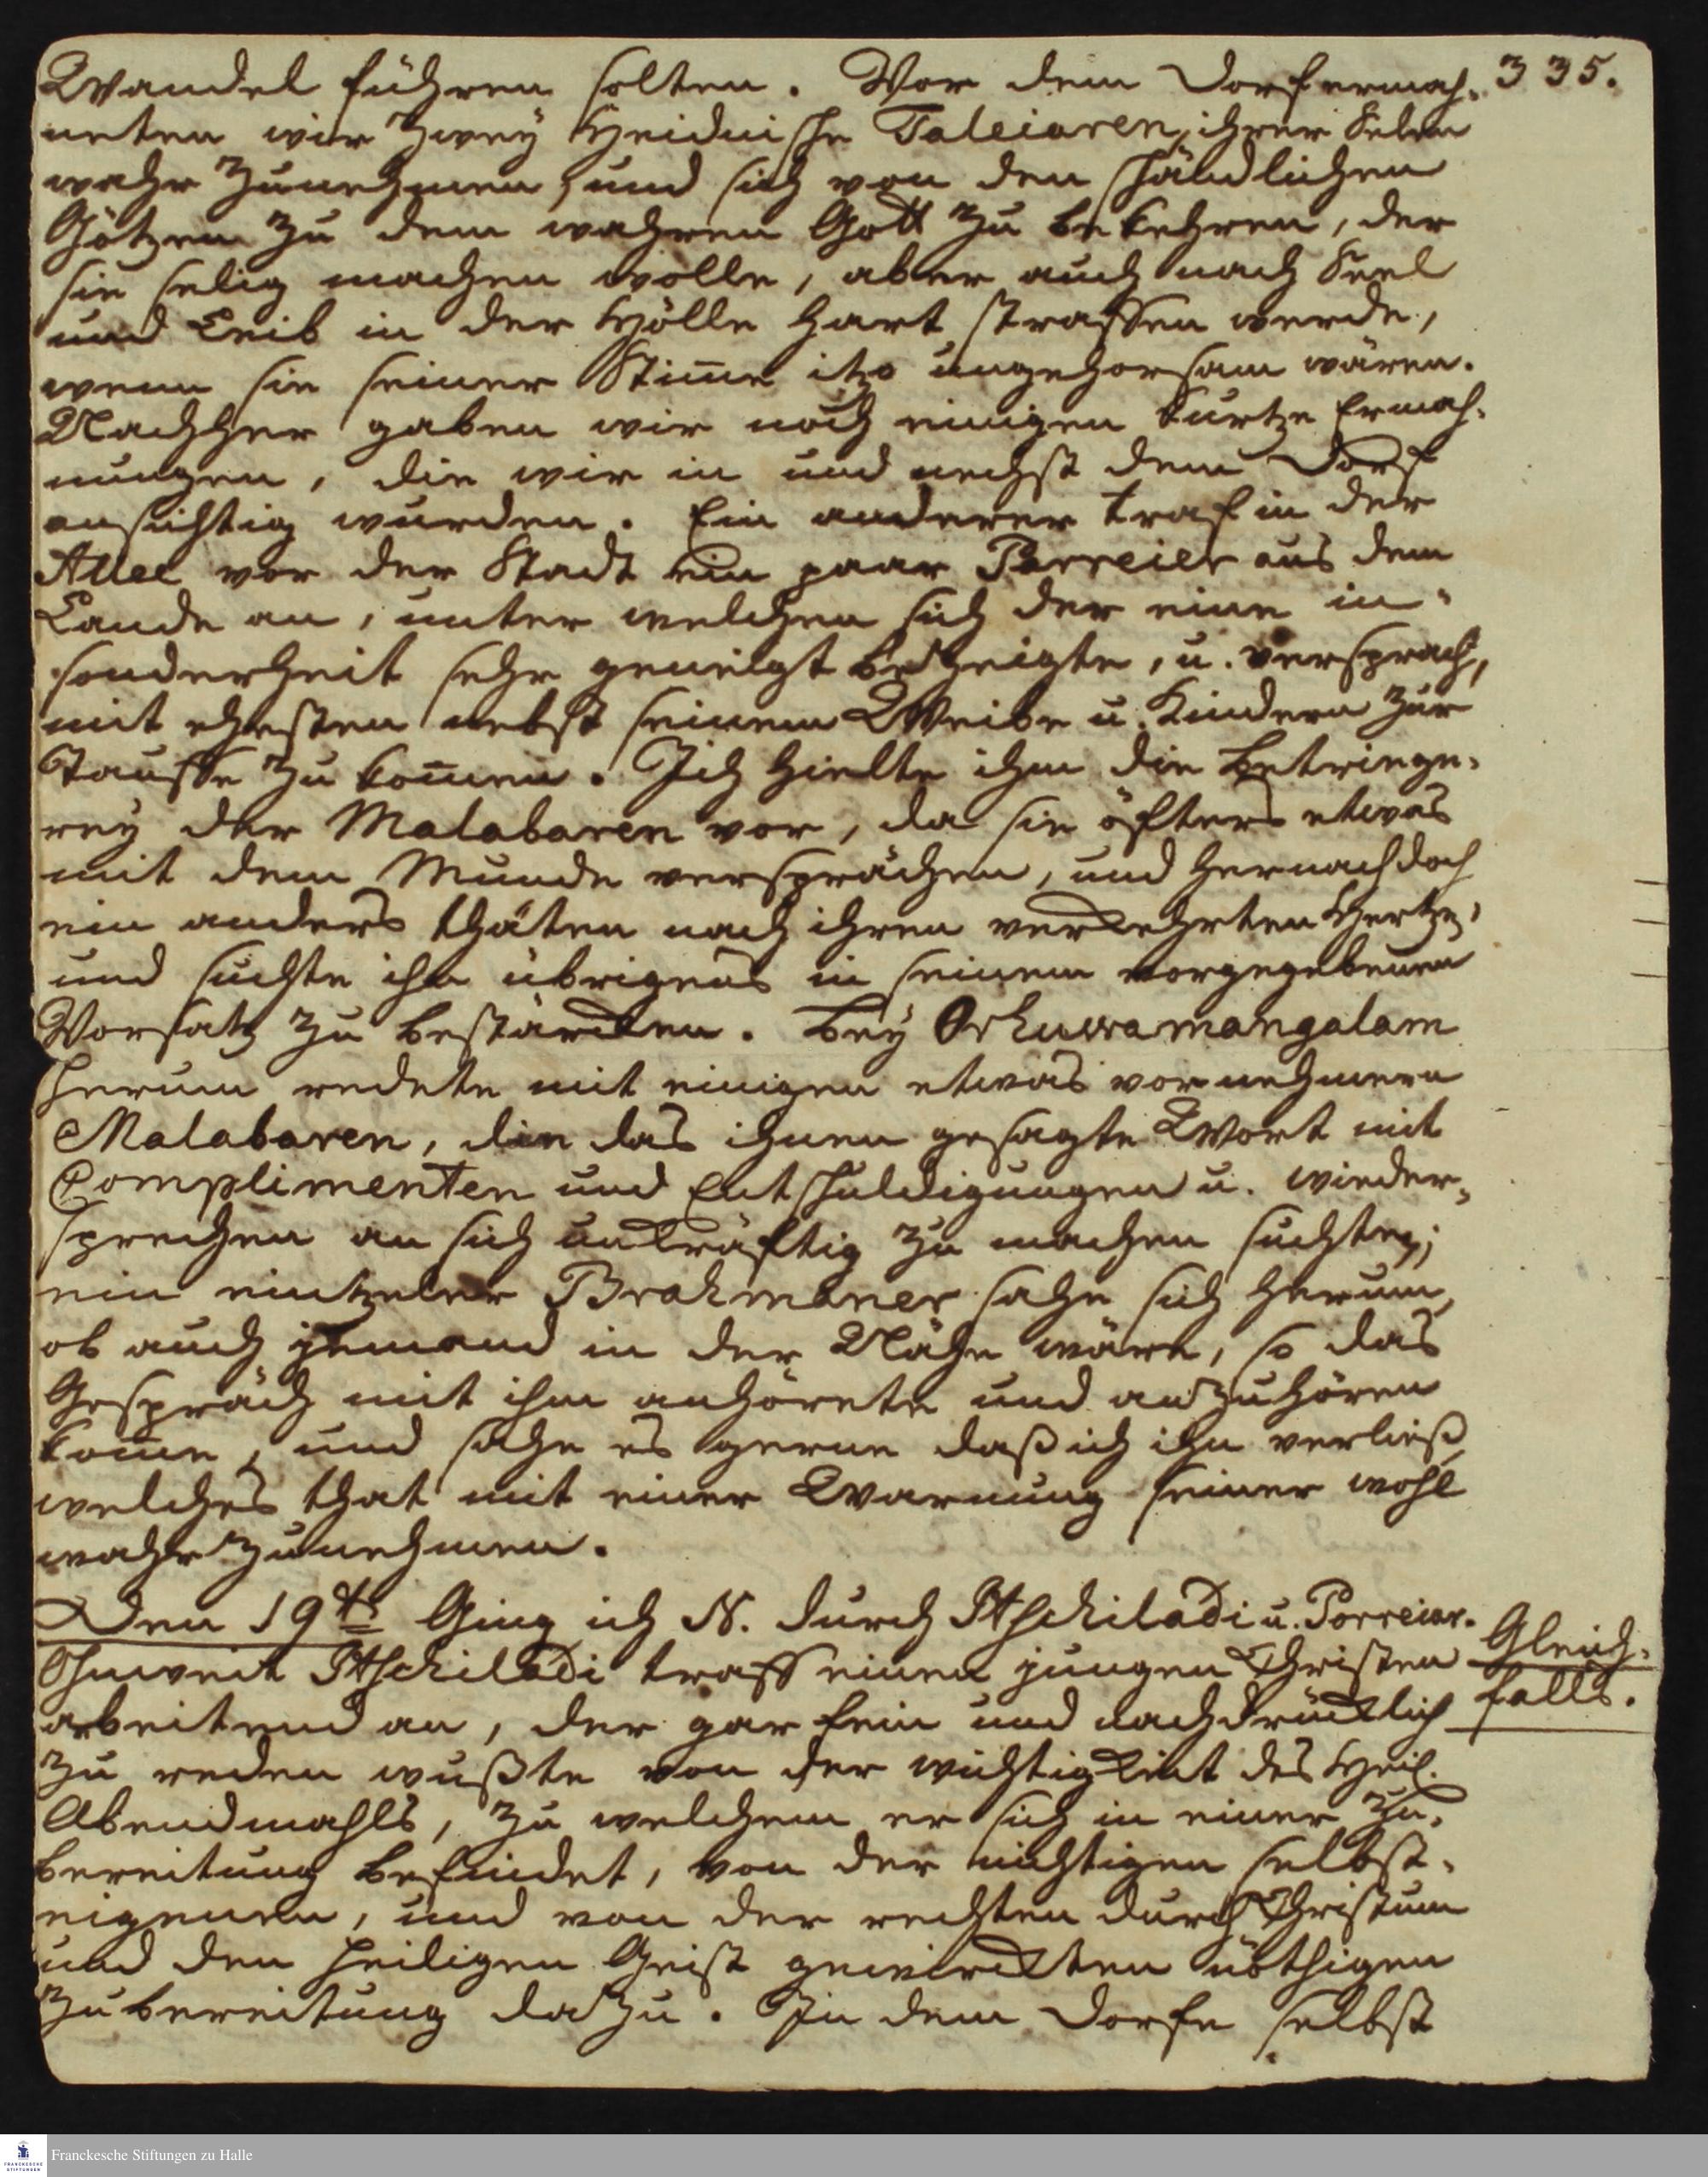 335.
Wandel führen solten. Vor dem Dorf ermah-
neten wir zwey Heidnische Taleiaren, ihrer Selen
wahr zunehmen, und sich von den schändlichen
Götzen zu dem wahren Gott zu bekehren, der
sie selig machen wolle, aber auch nach Seel
und Leib in der Hölle hart straffen werde,
wenn sie seiner Stim̄e itzo ungehorsam wären.
Nachher gaben wir noch einigen kurtze Ermah-
nungen, die wir in und nechst dem Dorf
ansichtig wurden. Ein anderer traf in der
Allee vor der Stadt ein paar Parreier aus dem
Lande an, unter welchen sich der eine in-
sonderheit sehr geneigt bezeigte, u. versprach,
mit ehesten nebst seinem Weibe u. Kindern zur
Tauffe zu kom̄en. Ich hielte ihm die Betriege-
rey der Malabaren vor, da sie öfters etwas
mit dem Munde versprächen, und hernach doch
ein anders thäten nach ihren verkehrten Hertze,
und suchte ihn übrigens in seinem vorgegebenen
Vorsatz zu bestärcken. Bey Orhuwamangalam
herum redete mit einigen etwas vornehmern
Malabaren, die das ihnen gesagte Wort mit
Complimenten und Entschuldigungen u. wieder-
sprechen an sich unkräftig zu machen suchten;
ein eintzeler Brahmaner sahe sich herum,
ob auch jemand in der Nähe wäre, so das
Gespräch mit ihm anhörete und anzuhören
kom̄e, und sahe es gerne daß ich ihn verließ,
welches that mit einer Warnung seiner wohl
wahr zunehmen.
Den 19ten Ging ich N. durch Itschiladi u. Porreiar.
Ohnweit Itschiladi traff einen jungen Christen
Gleich-
falls.
arbeitend an, der gar fein und nachdrücklich
zu reden wußte von der wichtigkeit des Heil.
Abendmahls, zu welchem er sich in einer Zu-
bereitung befindet, von der nichtigen selbst-
eigenen, und von der rechten durch Christum
und den heiligen Geist gewirckten nöthigen
Zubereitung dazu. In dem Dorfe selbst
Franckesche Stiftungen zu Halle